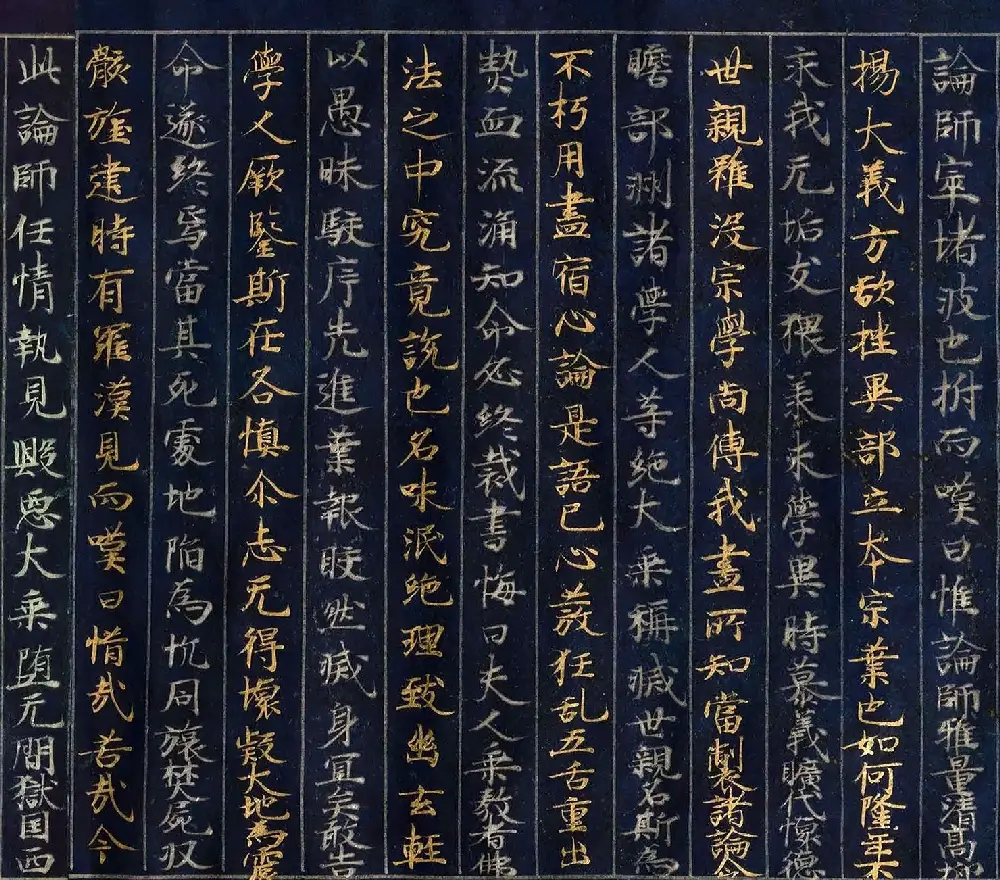 論師窣堵波也拊而嘆曰惟論師雅量清高抑
揚大義方欲挫異部立本宗業也如何降年不
永我无垢友猥承末學異時慕義曠代懷德
世親雖沒宗學尚傳我盡所知當製諸論令
瞻部洲諸學人等絶大乘稱滅世親名斯為
不朽用盡宿心論是語已心發狂乱五舌重出
熱血流涌知命必終裁書悔曰夫大乘教者佛
法之中究竟說也名味泯絶理致幽玄輕
以愚昧駮斥先進業報皎然滅身宜矣敢告
學人厥鑒斯在各慎尒志无得壞疑大地為震
命遂終焉當其死處地陷為坑同旅焚屍収
骸旌建時有羅漢見而嘆曰惜哉苦哉今
此論師任情執見毀惡大乘堕无間獄国西